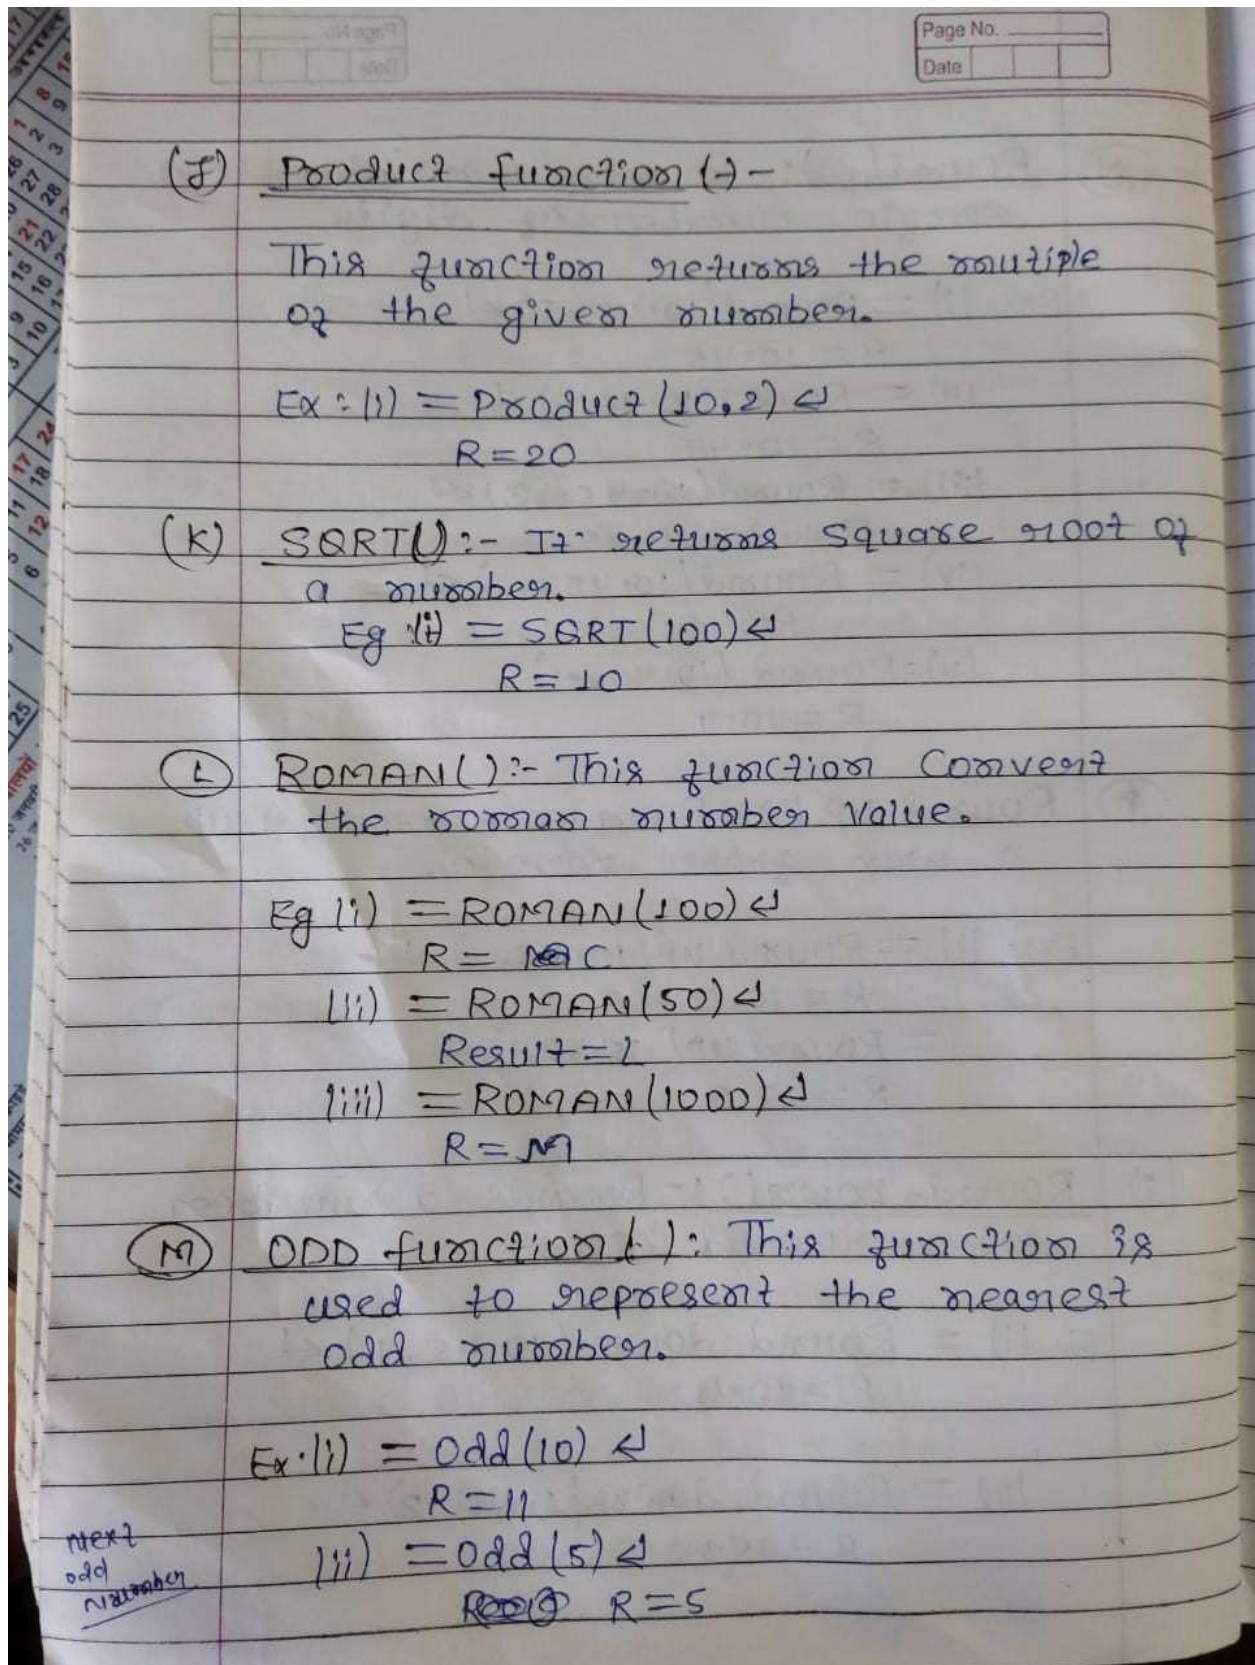 Page No.
Date
(J) Product function (-) -
This function returns the mutiple
of the given number.
Ex: (i) = Product (10,2) ↵
R = 20
(K) SQRT() :- It returns square root of
a number.
Eg (i) = SQRT (100) ↵
R = 10
(L) ROMAN() :- This function Convert
the roman number Value.
Eg (i) = ROMAN (100) ↵
R = C
(ii) = ROMAN (50) ↵
Result = L
(iii) = ROMAN (1000) ↵
R = M
(M) ODD function ( ): This function is
used to represent the nearest
odd number.
Ex. (i) = Odd (10) ↵
R = 11
Next
odd
Number
(ii) = Odd (5) ↵
R = 5